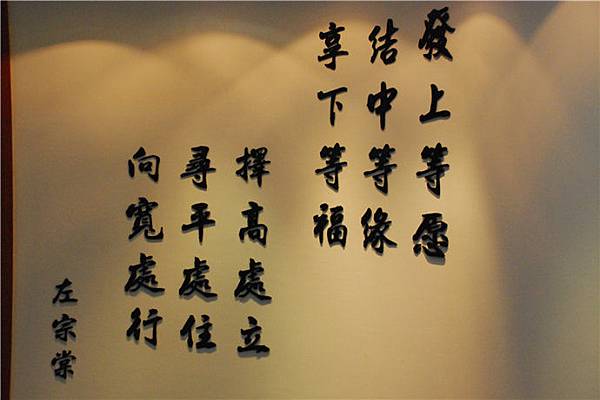 發上等愿
結中等緣
享下等福
擇高處立
尋平處住
向寬處行
左宗棠